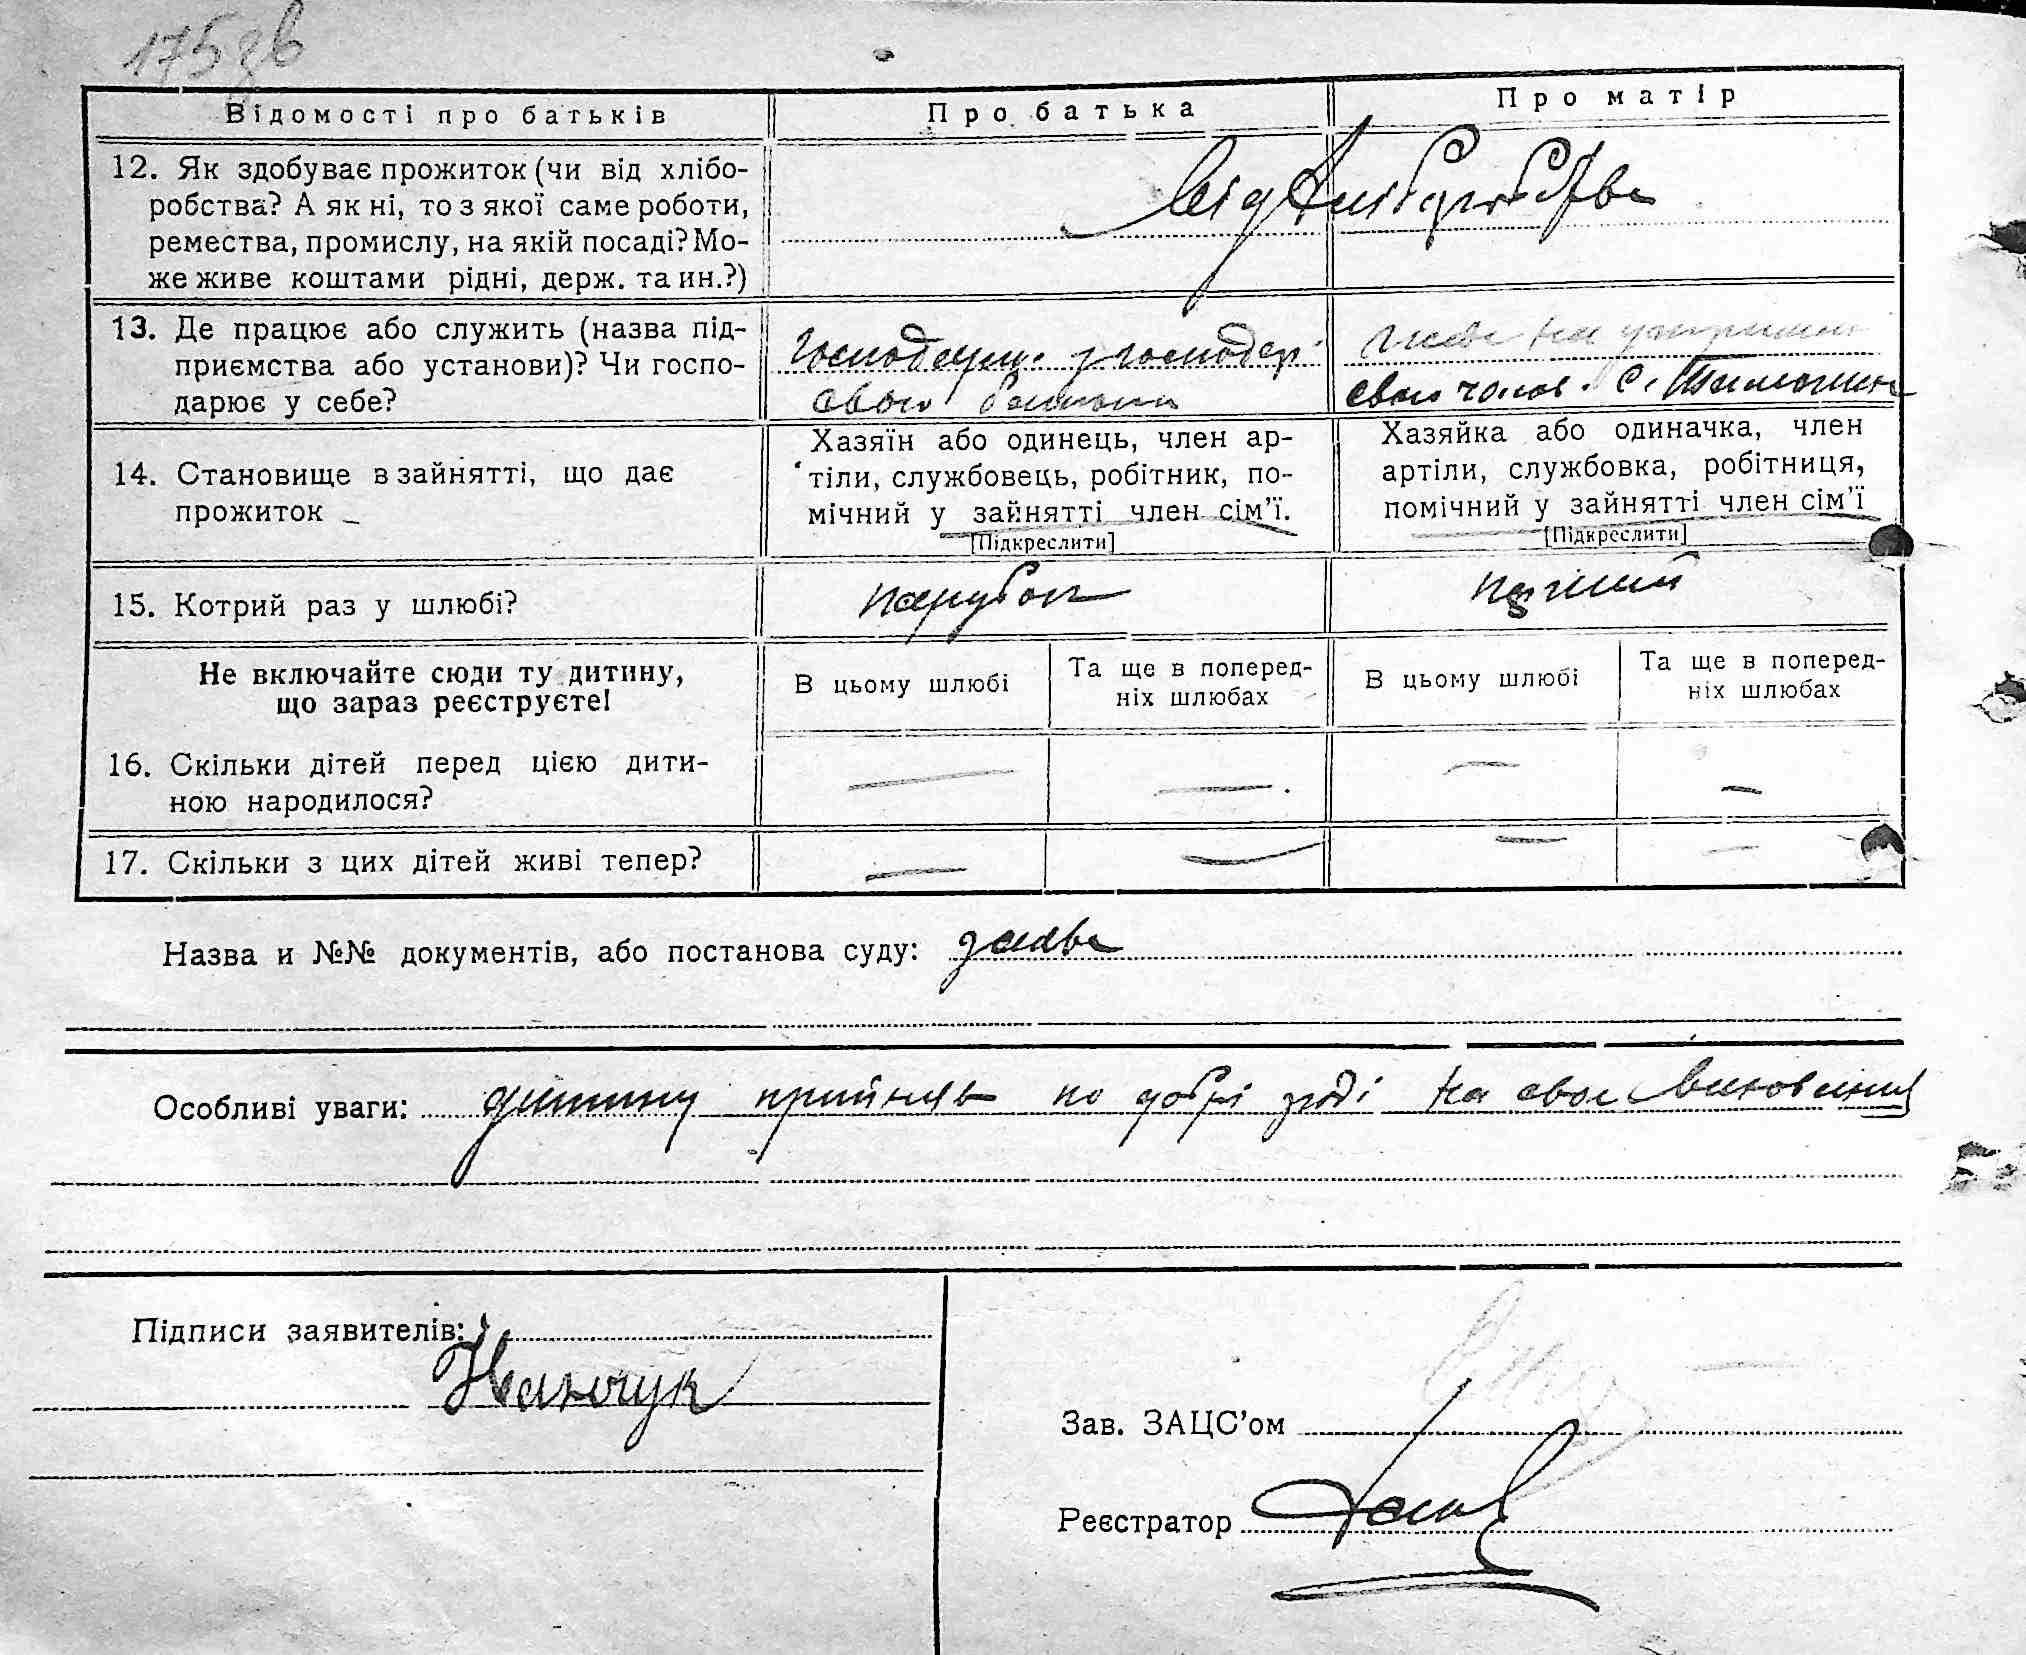 175 зв
Відомості про батьків
Про батька
Про матір
12. Як здобуває прожиток (чи від хлібо-
робства? А як ні, то з якої саме роботи,
ремества, промислу, на якій посаді? Мо-
же живе коштами рідні, держ. та ин.?)
від хліборобства
13. Де працює або служить (назва під-
приємства або установи)? Чи госпо-
дарює у себе?
свого батька
живе на
свого чолов. с.
14. Становище в зайнятті, що дає
прожиток
Хазяїн або одинець, член ар-
тіли, службовець, робітник, по-
мічний у зайнятті член сім'ї.
[Підкреслити]
Хазяйка або одиначка, член
артіли, службовка, робітниця,
помічний у зайнятті член сім'ї
[Підкреслити]
15. Котрий раз у шлюбі?
парубок
перший
Не включайте сюди ту дитину,
що зараз реєструєте!
В цьому шлюбі
Та ще в поперед-
ніх шлюбах
В цьому шлюбі
Та ще в поперед-
ніх шлюбах
16. Скільки дітей перед цією дити-
ною народилося?
— — — —
17. Скільки з цих дітей живі тепер?
— — — —
Назва и №№ документів, або постанова суду: заява
Особливі уваги: дитину прийняв по добрі згоді на своє виховання
Підписи заявителів:
Зав. ЗАЦС'ом
Реєстратор